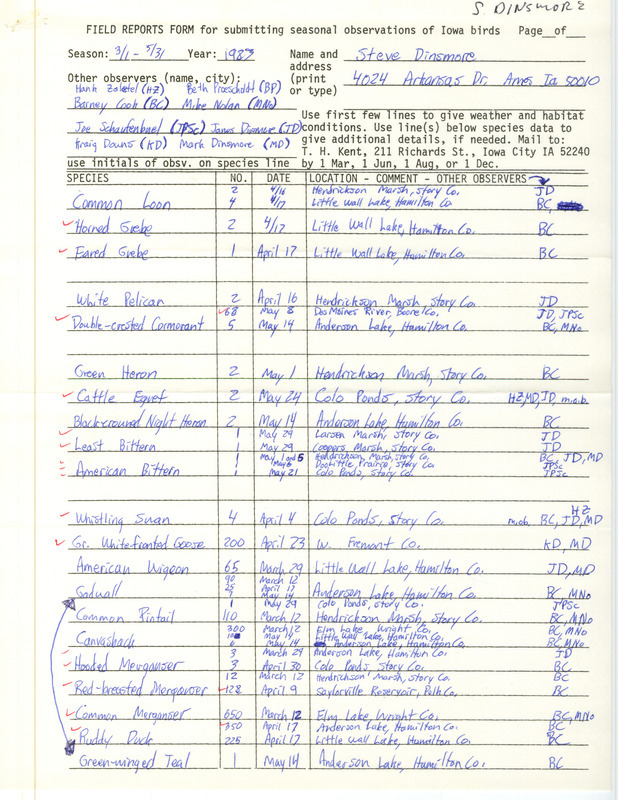 S. DINSMORE
FIELD REPORTS FORM for submitting seasonal observations of Iowa birds Page of
Season: 3/1 - 5/31 Year: 1983 Name and Steve Dinsmore
address
Other observers (name, city): (print 4024 Arkansas Dr. Ames Ia 50010
or type)
Hank Zaletel (HZ) Beth Proescholdt (BP)
Barney Cook (BC) Mike Nolan (MNo)
Joe Schaufenbuel (JPSc) James Dinsmore (JD)
Kraig Downs (KD) Mark Dinsmore (MD)
Use first few lines to give weather and habitat
conditions. Use line(s) below species data to
give additional details, if needed. Mail to:
T. H. Kent, 211 Richards St., Iowa City IA 52240
use initials of obsv. on species line by 1 Mar, 1 Jun, 1 Aug, or 1 Dec.
SPECIES NO. DATE LOCATION - COMMENT - OTHER OBSERVERS
2 4/16 Hendrickson Marsh, Story Co. JD
Common Loon 4 4/17 Little Wall Lake, Hamilton Co. BC
Horned Grebe 2 4/17 Little Wall Lake, Hamilton Co. BC
Eared Grebe 1 April 17 Little Wall Lake, Hamilton Co. BC
White Pelican 2 April 16 Hendrickson Marsh, Story Co. JD
68 May 8 Des Moines River, Boone Co. JD, JPSc
Double-crested Cormorant 5 May 14 Anderson Lake, Hamilton Co. BC, MNo
Green Heron 2 May 1 Hendrickson Marsh, Story Co. BC
Cattle Egret 2 May 24 Colo Ponds, Story Co. HZ, MD, JD m.o.b.
Black-crowned Night Heron 2 May 14 Anderson Lake, Hamilton Co. BC
1 May 29 Larson Marsh, Story Co. JD
Least Bittern 1 May 29 Coopers Marsh, Story Co. JD
1 May 1 and 5 Hendrickson Marsh, Story Co. BC, JD, MD
1 May 6 Doolittle Prairie, Story Co. JPSc
American Bittern 1 May 21 Colo Ponds, Story Co. JPSc
Whistling Swan 4 April 4 Colo Ponds, Story Co. m.o.b. BC, JD, MD HZ
Gr. Whitefronted Goose 200 April 23 W. Fremont Co. KD, MD
American Wigeon 65 March 29 Little Wall Lake, Hamilton Co. JD, MD
90 March 12
25 April 17
Gadwall 9 May 14 Anderson Lake, Hamilton Co. BC, MNo
1 May 29 Colo Ponds, Story Co. JPSc
Common Pintail 110 March 12 Hendrickson Marsh, Story Co. BC, MNo
300 March 12 Elm Lake, Wright Co. BC, MNo
May 14 Little Wall Lake, Hamilton Co.
Canvasback 6 May 14 Anderson Lake, Hamilton Co. BC, MNo
3 March 29 Anderson Lake, Hamilton Co. JD
Hooded Merganser 3 April 30 Colo Ponds, Story Co. BC
12 March 12 Hendrickson Marsh, Story Co. BC
Red-breasted Merganser 128 April 9 Saylorville Reservoir, Polk Co. BC
Common Merganser 650 March 12 Elm Lake, Wright Co. BC, MNo
350 April 17 Anderson Lake, Hamilton Co. BC
Ruddy Duck 225 April 17 Little Wall Lake, Hamilton Co. BC
Green-winged Teal 1 May 14 Anderson Lake, Hamilton Co. BC